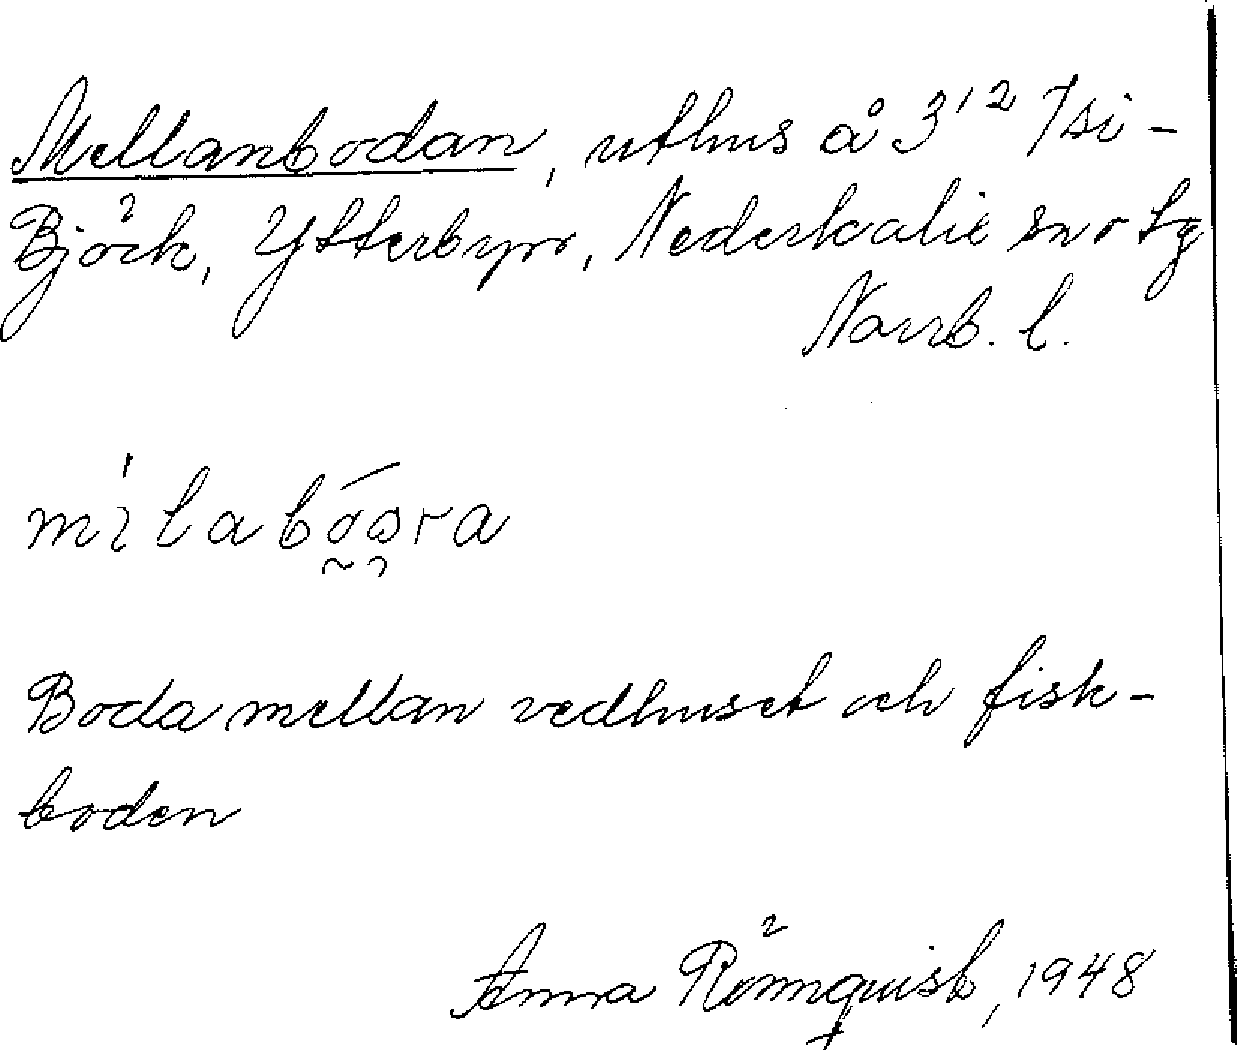 Mellanbodan, uthus å 3¹² Isi-
Björk, Ytterbyn, Nederkalix sn o tg
Norrb. l.
Boda mellan vedhuset och fisk-
boden
Anna Rönnquist, 1948